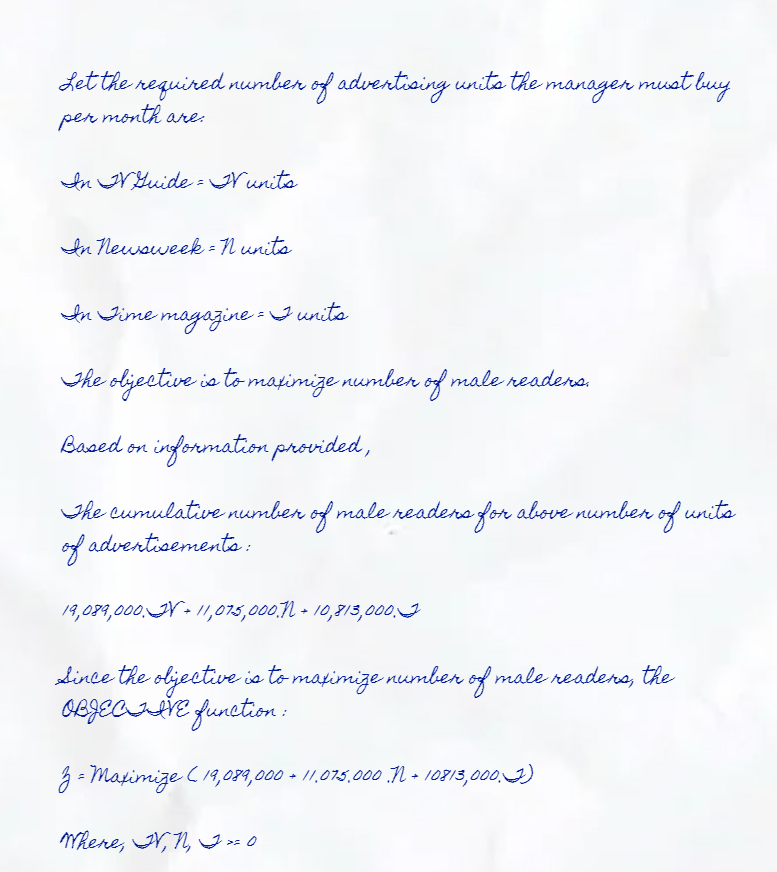 Let the required number of advertising units the manager must buy
per month are:
In TV Guide = TV units
In Newsweek = N units
In Time magazine = T units
The objective is to maximize number of male readers.
Based on information provided,
The cumulative number of male readers for above number of units
of advertisements :
19,089,000.TV + 11,075,000.N + 10,813,000.T
Since the objective is to maximize number of male readers, the
OBJECTIVE function :
z = Maximize ( 19,089,000 + 11.075.000 .N + 10813,000.T)
Where, TV, N, T >= 0